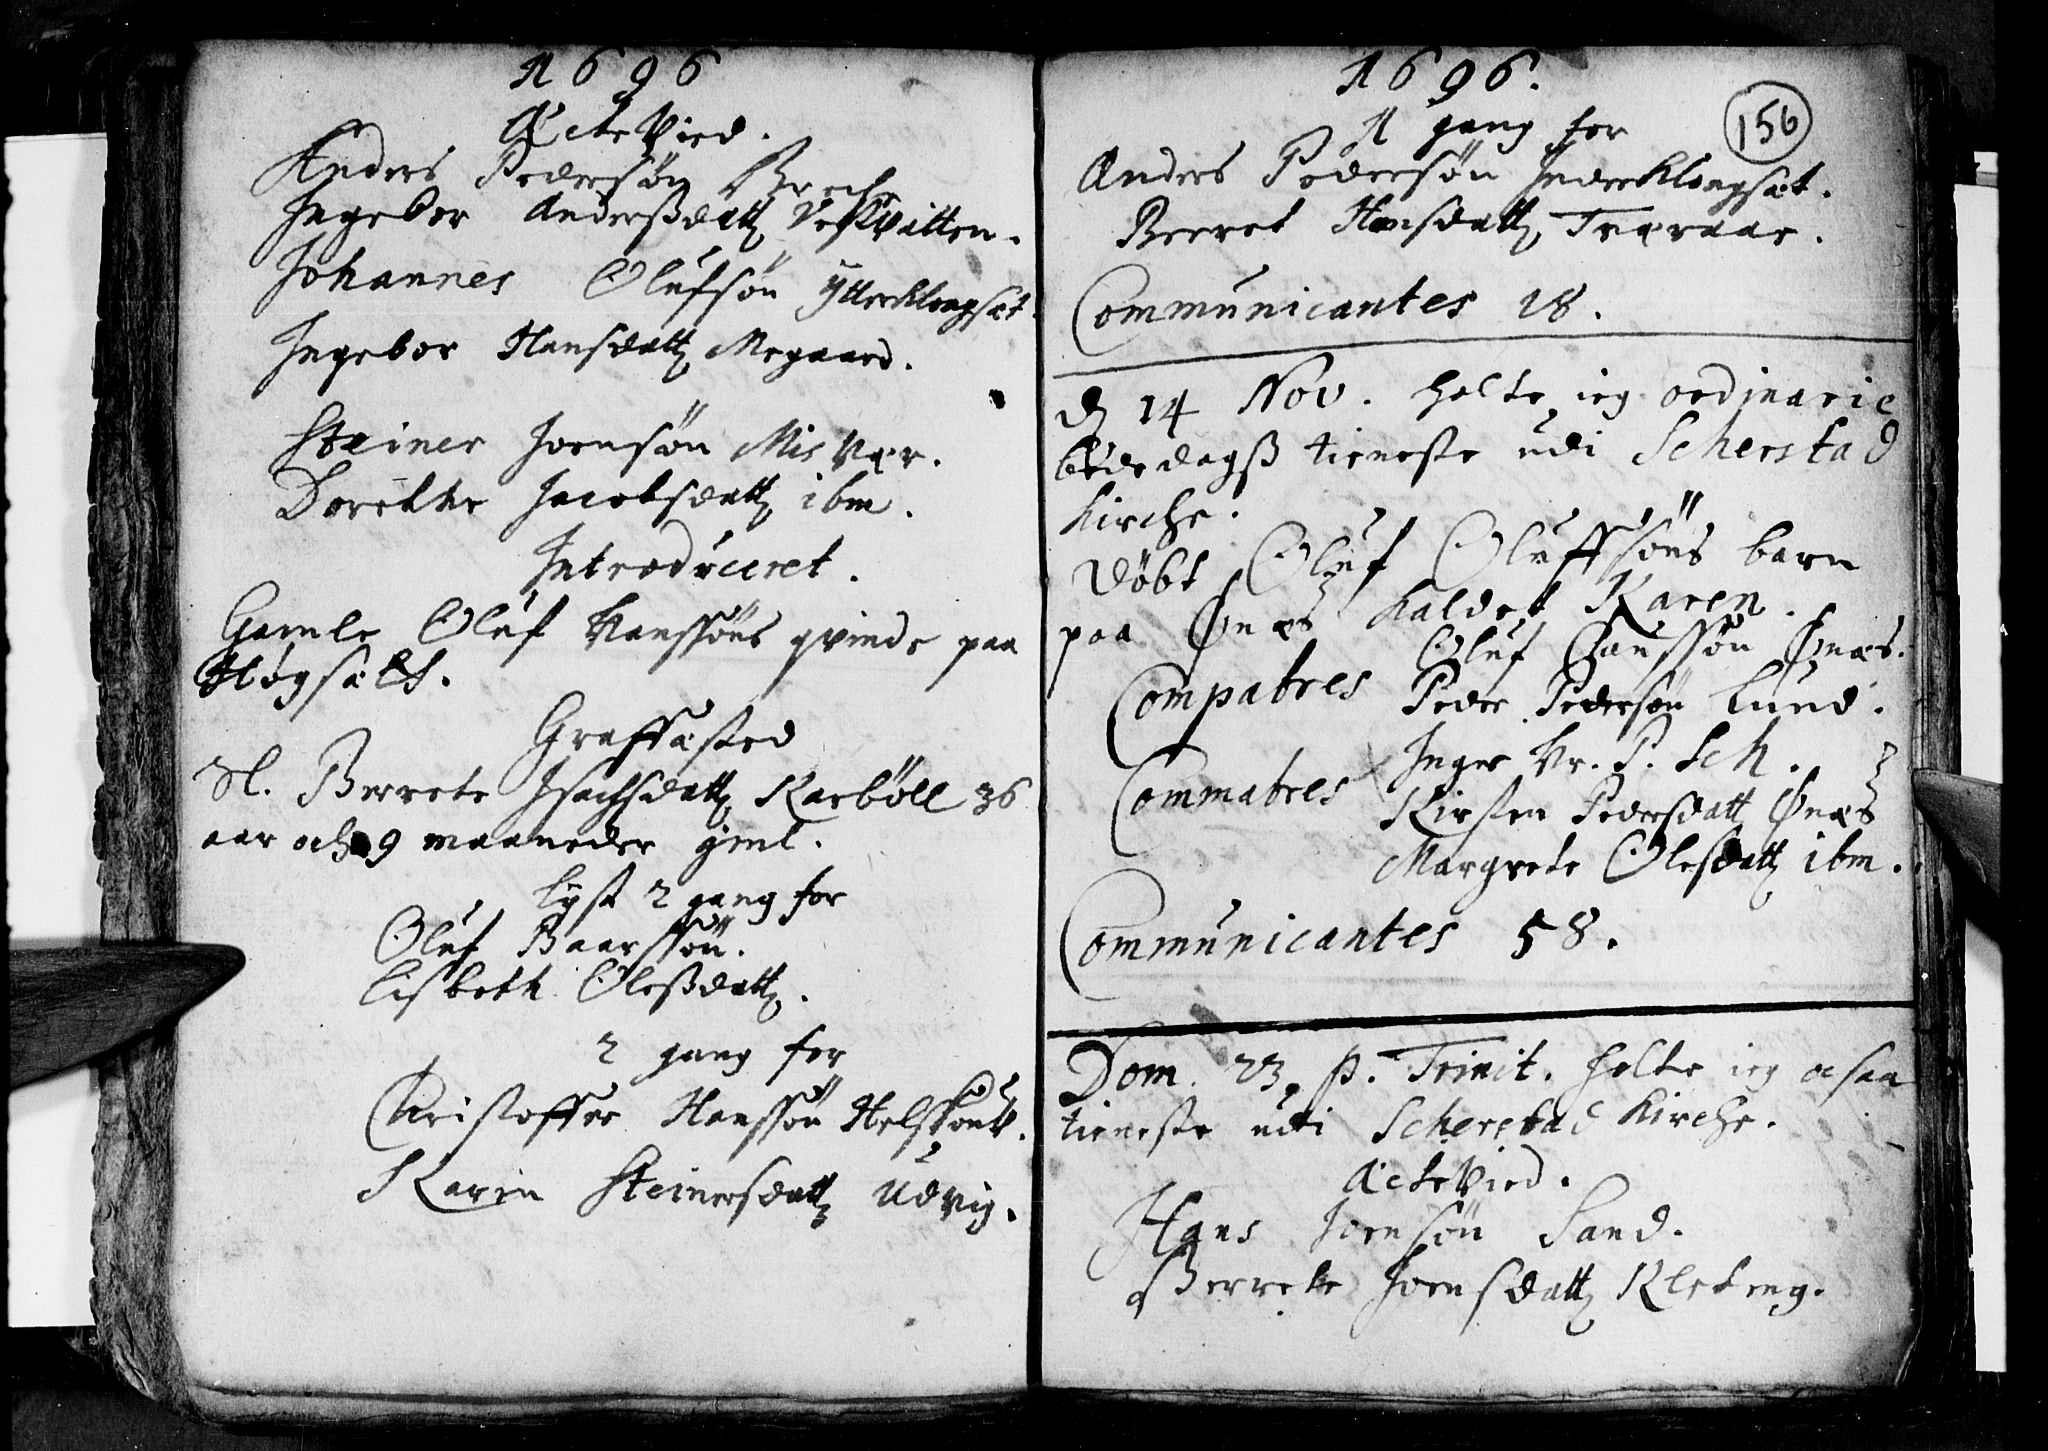 1696
Æcte Vied.
Anders Pedersøn Breche
Ingebor Andersdatt Vesqvitten.
Johannes Olufsøn Ytterklongsæt.
Ingebor Hansdatt Megaard.
Steiner Joensøn Misvær.
Dorethe Jacobsdatt ibm.
Introduceret.
Gamle Oluf Hanssøns qvinde paa
Høgsælt.
Graffæsted
Sl. Berrete Isachsdatt Karbøll 36
aar och 9 maaneder gml.
Lyst 2 gang for
Oluf Baarssøn.
Lisbeth Olesdatt.
2 gang for
Christoffer Hanssøn
Karin Steinersdatt Udvig.
1696.
156
1 gang for
Anders Pedersøn Inderklongsæt.
Berret Hansdatt Træraae.
Communicantes 18.
D 14 Nov. holte ieg ordinarie
bededagß tieneste udi Scherstad
Kirche.
Døbt Oluf Oluffsøns barn
paa Ønæs kaldet Karen.
Oluf Claussøn Ønæs.
Compatres Peder Pedersøn Lund.
Inger Hr. P. Sch.
Commatres Kirsten Pedersdatt Ønæs
Margrete Olesdatt ibm.
Communicantes 58.
Dom. 23. p. Trinit. holte ieg ocsaa
tieneste udi Scherstad Kirche.
Æcte Vied.
Hans Joensøn Sand.
Berrete Joensdatt Kleteng.